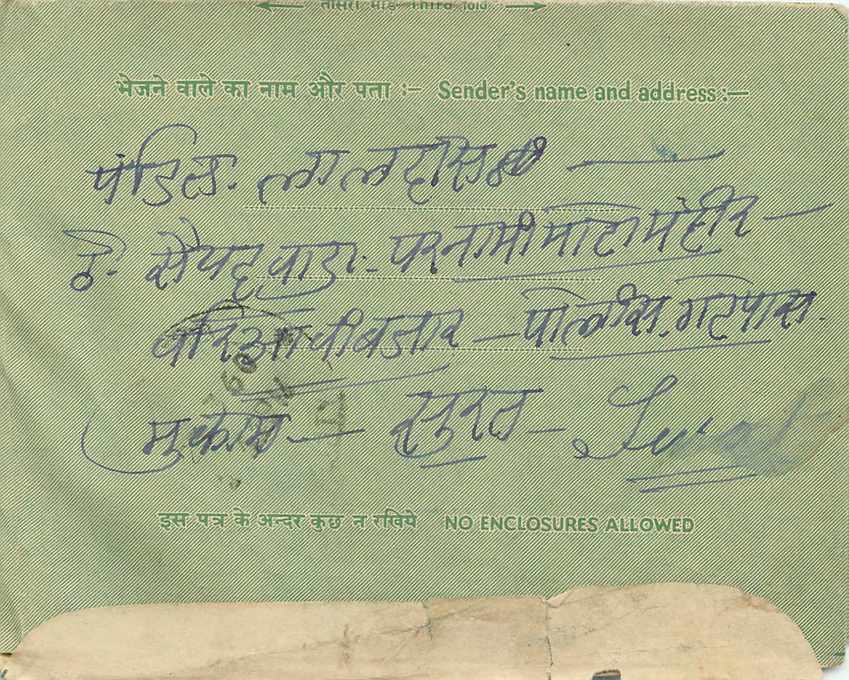 तीसरा मोड़ Third fold
भेजने वाले का नाम और पता :— Sender's name and address:—
पंडित. लालदासजी —
ठे. सैयदवाडा. परनामी मोटा मंदीर —
वरिआवी बजार — पोलीस. गेट पास.
मुकाम — सुरत — Surat
इस पत्र के अन्दर कुछ न रखिये NO ENCLOSURES ALLOWED